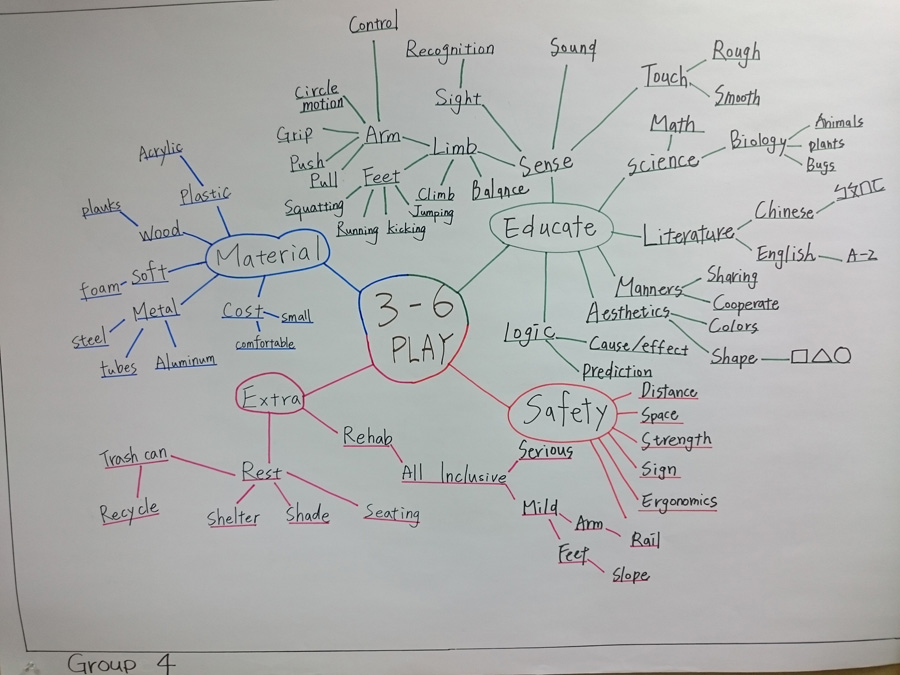 Control
Recognition
Sound
Rough
Touch
Smooth
Circle
motion
Sight
Math
Animals
Grip
Arm
Limb
Sense
Science
Biology
plants
Bugs
Acrylic
Push
Pull
Feet
Climb
Balance
Plastic
Squatting
Jumping
Running
kicking
planks
Wood
Material
Educate
Literature
Chinese
English
A-Z
foam
Soft
Metal
Cost
small
comfortable
steel
tubes
Aluminum
3-6
PLAY
Manners
Sharing
Cooperate
Aesthetics
Colors
Shape
Logic
Cause/effect
Prediction
Extra
Safety
Distance
Space
Strength
Sign
Ergonomics
Rail
Rehab
All Inclusive
Serious
Mild
Arm
Feet
Slope
Trash can
Recycle
Rest
Shelter
Shade
Seating
Group 4